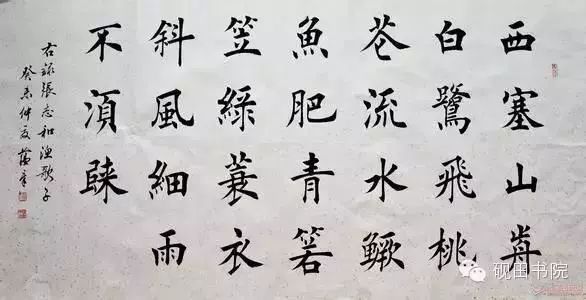 西塞山歬
白鷺飛桃
花流水鱖
魚肥青箬
笠綠蓑衣
斜風細雨
不須歸
右錄張志和漁歌子
癸未仲夏
砚田书院